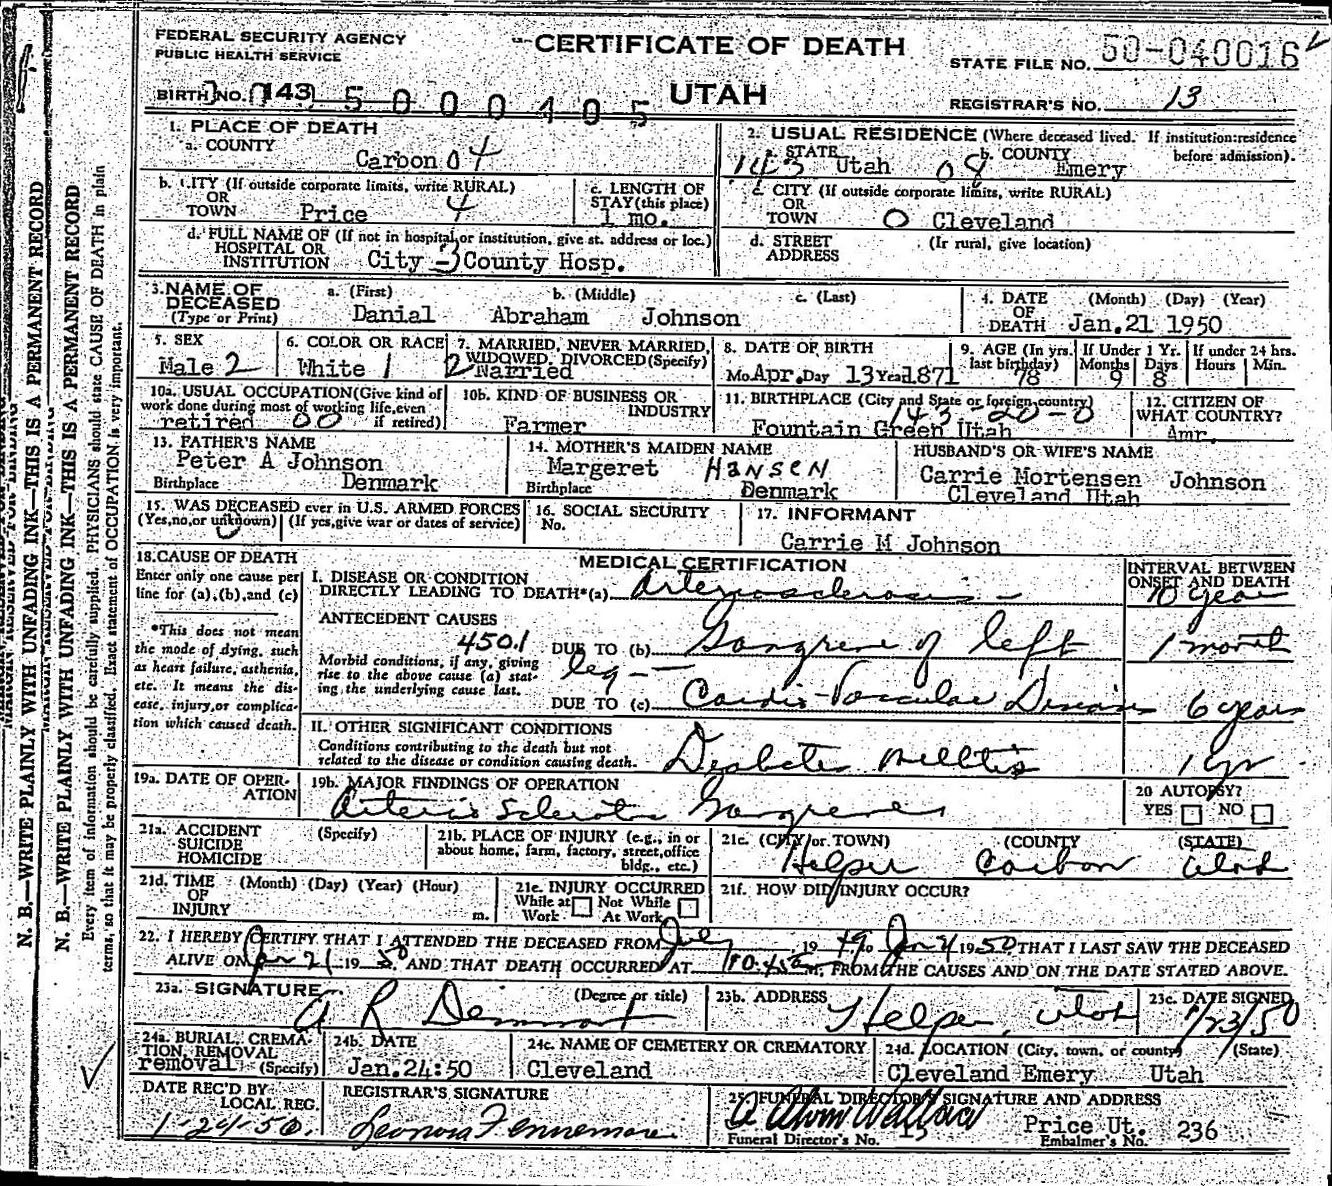 FEDERAL SECURITY AGENCY
PUBLIC HEALTH SERVICE
CERTIFICATE OF DEATH
UTAH
STATE FILE NO. 50-040016
BIRTH NO. 143
REGISTRAR'S NO. 13
1. PLACE OF DEATH
a. COUNTY
Carbon 04
2. USUAL RESIDENCE (Where deceased lived. If institution: residence before admission).
a. STATE b. COUNTY
143 Utah 08 Emery
b. CITY (If outside corporate limits, write RURAL)
OR
TOWN Price 4
c. LENGTH OF
STAY (this place)
1 mo.
c. CITY (If outside corporate limits, write RURAL)
OR
TOWN 0 Cleveland
d. FULL NAME OF (If not in hospital or institution, give st. address or loc.)
HOSPITAL OR
INSTITUTION City 3 County Hosp.
d. STREET (If rural, give location)
ADDRESS
3. NAME OF
DECEASED
(Type or Print)
a. (First) b. (Middle) c. (Last)
Danial Abraham Johnson
4. DATE (Month) (Day) (Year)
OF
DEATH Jan. 21 1950
5. SEX
Male 2
6. COLOR OR RACE
White 1
7. MARRIED, NEVER MARRIED,
WIDOWED, DIVORCED (Specify)
2 Married
8. DATE OF BIRTH
Mo. Apr. Day 13 Year 1871
9. AGE (In yrs. last birthday)
78
If Under 1 Yr.
Months Days
9 8
If under 24 hrs.
Hours Min.
10a. USUAL OCCUPATION (Give kind of
work done during most of working life, even
if retired)
retired 00
10b. KIND OF BUSINESS OR
INDUSTRY
Farmer
11. BIRTHPLACE (City and State or foreign country)
143-20-0
Fountain Green Utah
12. CITIZEN OF
WHAT COUNTRY?
Amr.
13. FATHER'S NAME
Peter A Johnson
Birthplace Denmark
14. MOTHER'S MAIDEN NAME
Margeret HANSEN
Birthplace Denmark
HUSBAND'S OR WIFE'S NAME
Carrie Mortensen Johnson
Cleveland Utah
15. WAS DECEASED ever in U.S. ARMED FORCES
(Yes, no, or unknown) (If yes, give war or dates of service)
16. SOCIAL SECURITY
No.
17. INFORMANT
Carrie M Johnson
18. CAUSE OF DEATH
Enter only one cause per
line for (a), (b), and (c)
*This does not mean
the mode of dying, such
as heart failure, asthenia,
etc. It means the dis-
ease, injury, or complica-
tion which caused death.
MEDICAL CERTIFICATION
INTERVAL BETWEEN
ONSET AND DEATH
I. DISEASE OR CONDITION
DIRECTLY LEADING TO DEATH*(a) Arteriosclerosis - 10 years
ANTECEDENT CAUSES
450.1
Morbid conditions, if any, giving
rise to the above cause (a) stat-
ing the underlying cause last.
DUE TO (b) Gangrene of left 1 month
leg -
DUE TO (c) Cardio-Vascular Disease 6 years
II. OTHER SIGNIFICANT CONDITIONS
Conditions contributing to the death but not
related to the disease or condition causing death.
Diabetes Mellitis 1 yr
19a. DATE OF OPER-
ATION
19b. MAJOR FINDINGS OF OPERATION
Arterio Sclerotic Gangrene
20 AUTOPSY?
YES NO
21a. ACCIDENT (Specify)
SUICIDE
HOMICIDE
21b. PLACE OF INJURY (e.g., in or
about home, farm, factory, street, office
bldg., etc.)
21c. (CITY or TOWN) (COUNTY) (STATE)
Helper Carbon Utah
21d. TIME (Month) (Day) (Year) (Hour)
OF
INJURY m.
21e. INJURY OCCURRED
While at Not While
Work At Work
21f. HOW DID INJURY OCCUR?
22. I HEREBY CERTIFY THAT I ATTENDED THE DECEASED FROM July, 1949, to Jan 21 1950, THAT I LAST SAW THE DECEASED
ALIVE ON Jan 21, 1950, AND THAT DEATH OCCURRED AT 10:45 m., FROM THE CAUSES AND ON THE DATE STATED ABOVE.
23a. SIGNATURE (Degree or title)
A R Demman
23b. ADDRESS
Helper, Utah
23c. DATE SIGNED
1/23/50
24a. BURIAL, CREMA-
TION, REMOVAL
removal (Specify)
24b. DATE
Jan. 24:50
24c. NAME OF CEMETERY OR CREMATORY
Cleveland
24d. LOCATION (City, town, or county) (State)
Cleveland Emery Utah
DATE REC'D BY
LOCAL REG.
1-24-50.
REGISTRAR'S SIGNATURE
Leonora Fennemore
25. FUNERAL DIRECTOR'S SIGNATURE AND ADDRESS
Wallace
Price Ut.
Funeral Director's No. 13 Embalmer's No. 236
N. B.—WRITE PLAINLY WITH UNFADING INK—THIS IS A PERMANENT RECORD
N. B.—WRITE PLAINLY WITH UNFADING INK—THIS IS A PERMANENT RECORD
Every item of information should be carefully supplied. PHYSICIANS should state CAUSE OF DEATH in plain
terms, so that it may be properly classified. Exact statement of OCCUPATION is very important.